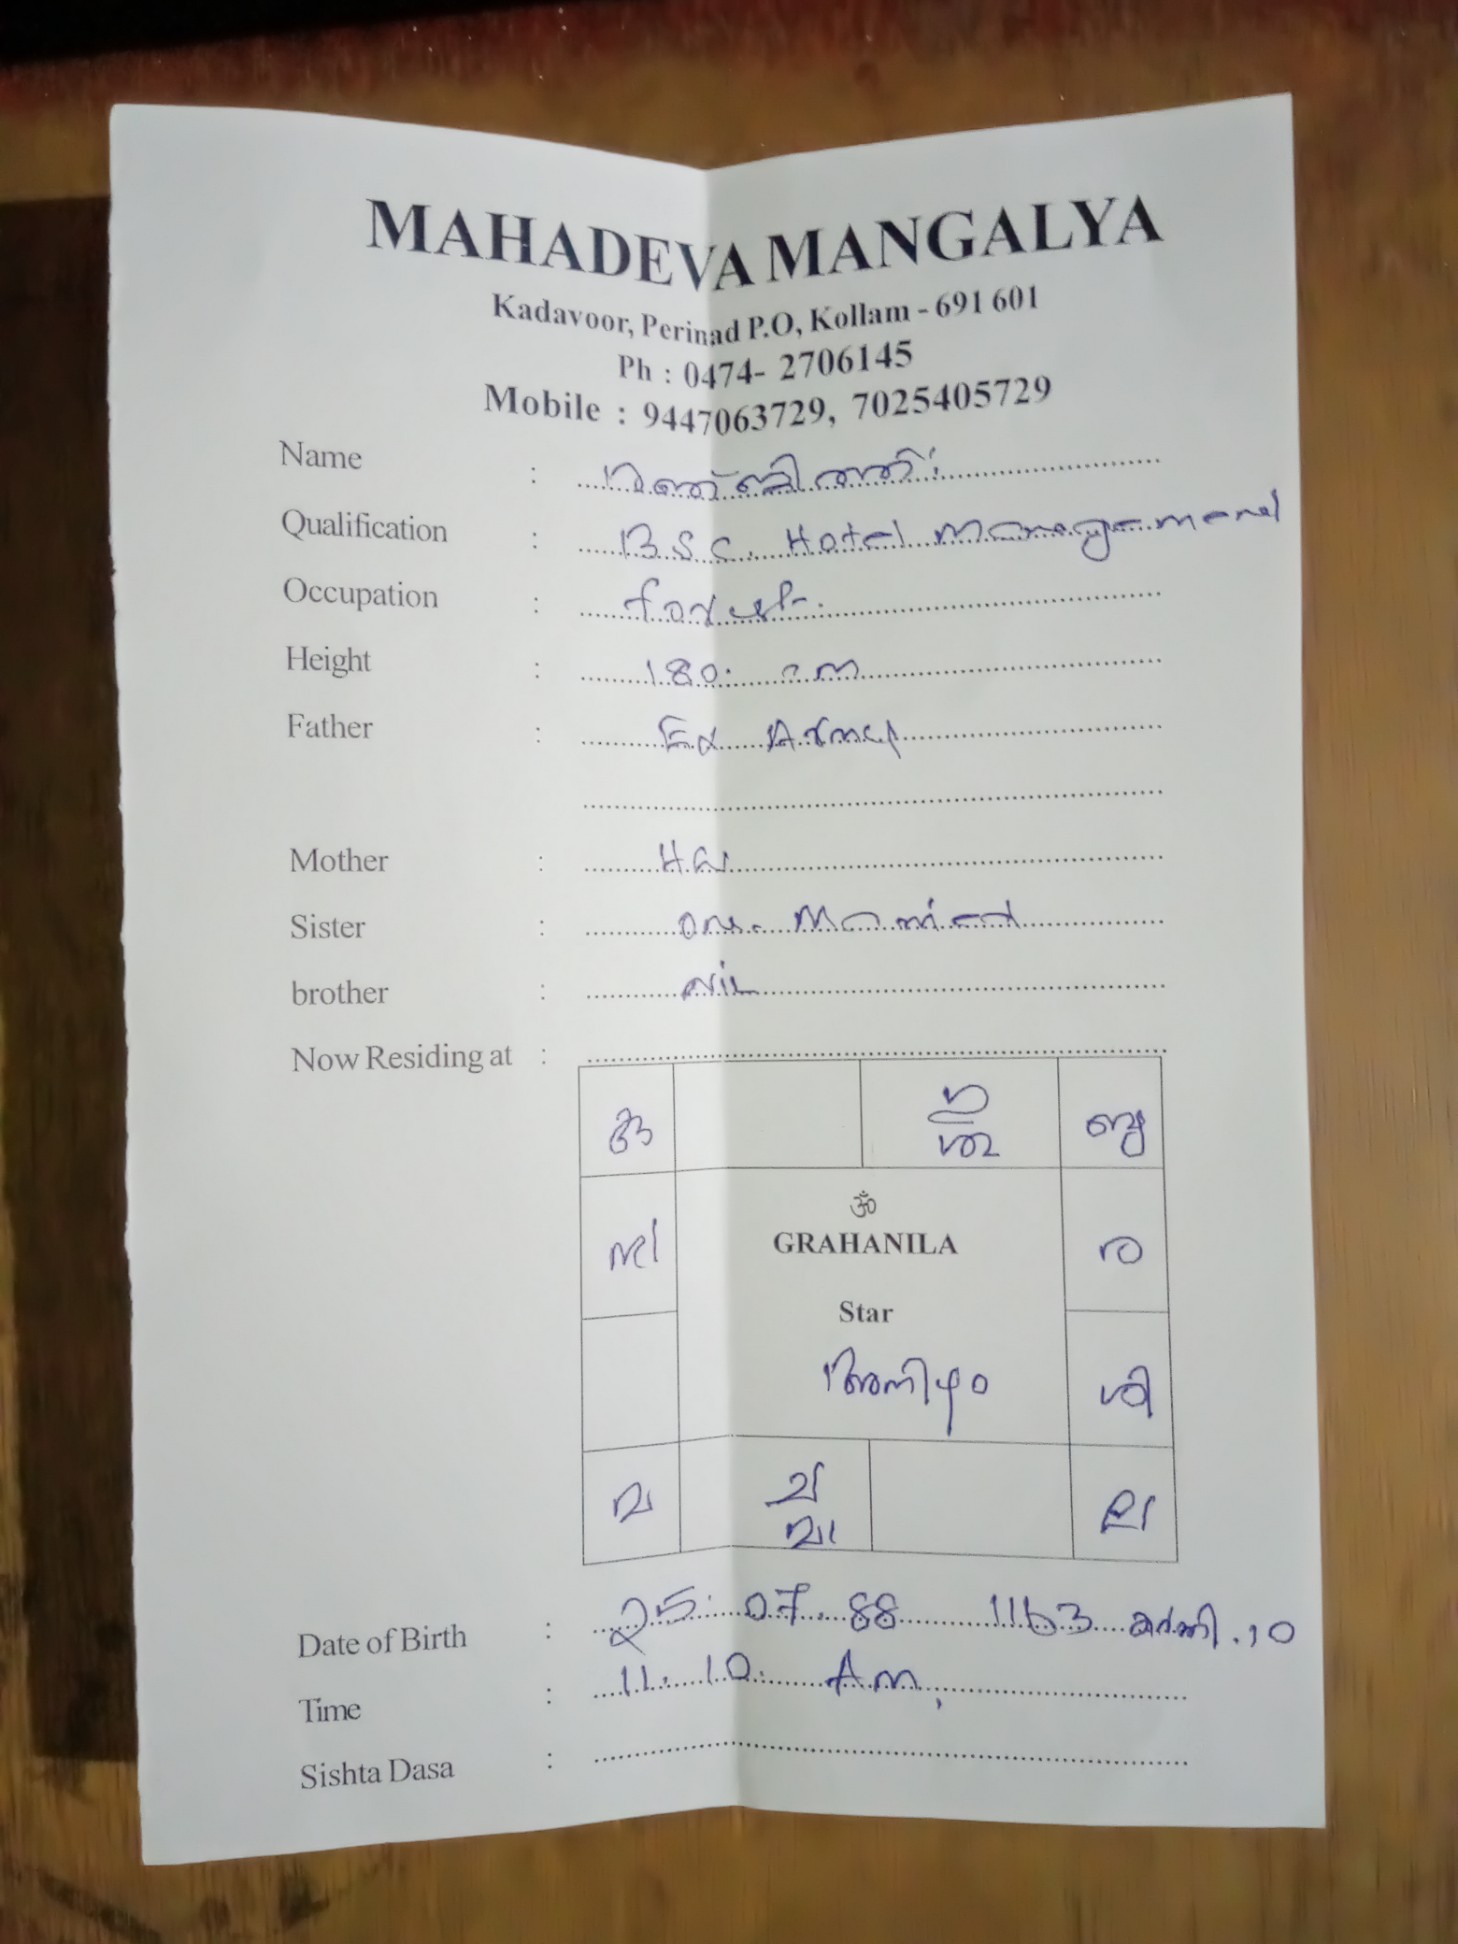 MAHADEVA MANGALYA
Kadavoor, Perinad P.O, Kollam - 691 601
Ph : 0474- 2706145
Mobile : 9447063729, 7025405729
Name :
Qualification : BSC. Hotel Management
Occupation :
Height : 180. cm
Father : Ex Army
Mother : H.W
Sister : One. Married
brother : NiL
Now Residing at :
കു ബു
ॐ
GRAHANILA
Star
അനിഴം
ര
ശി
ച
മാ
ല
Date of Birth : 25. 07. 88 1163 കർക്കി. 10
Time : 11. 10. Am,
Sishta Dasa :